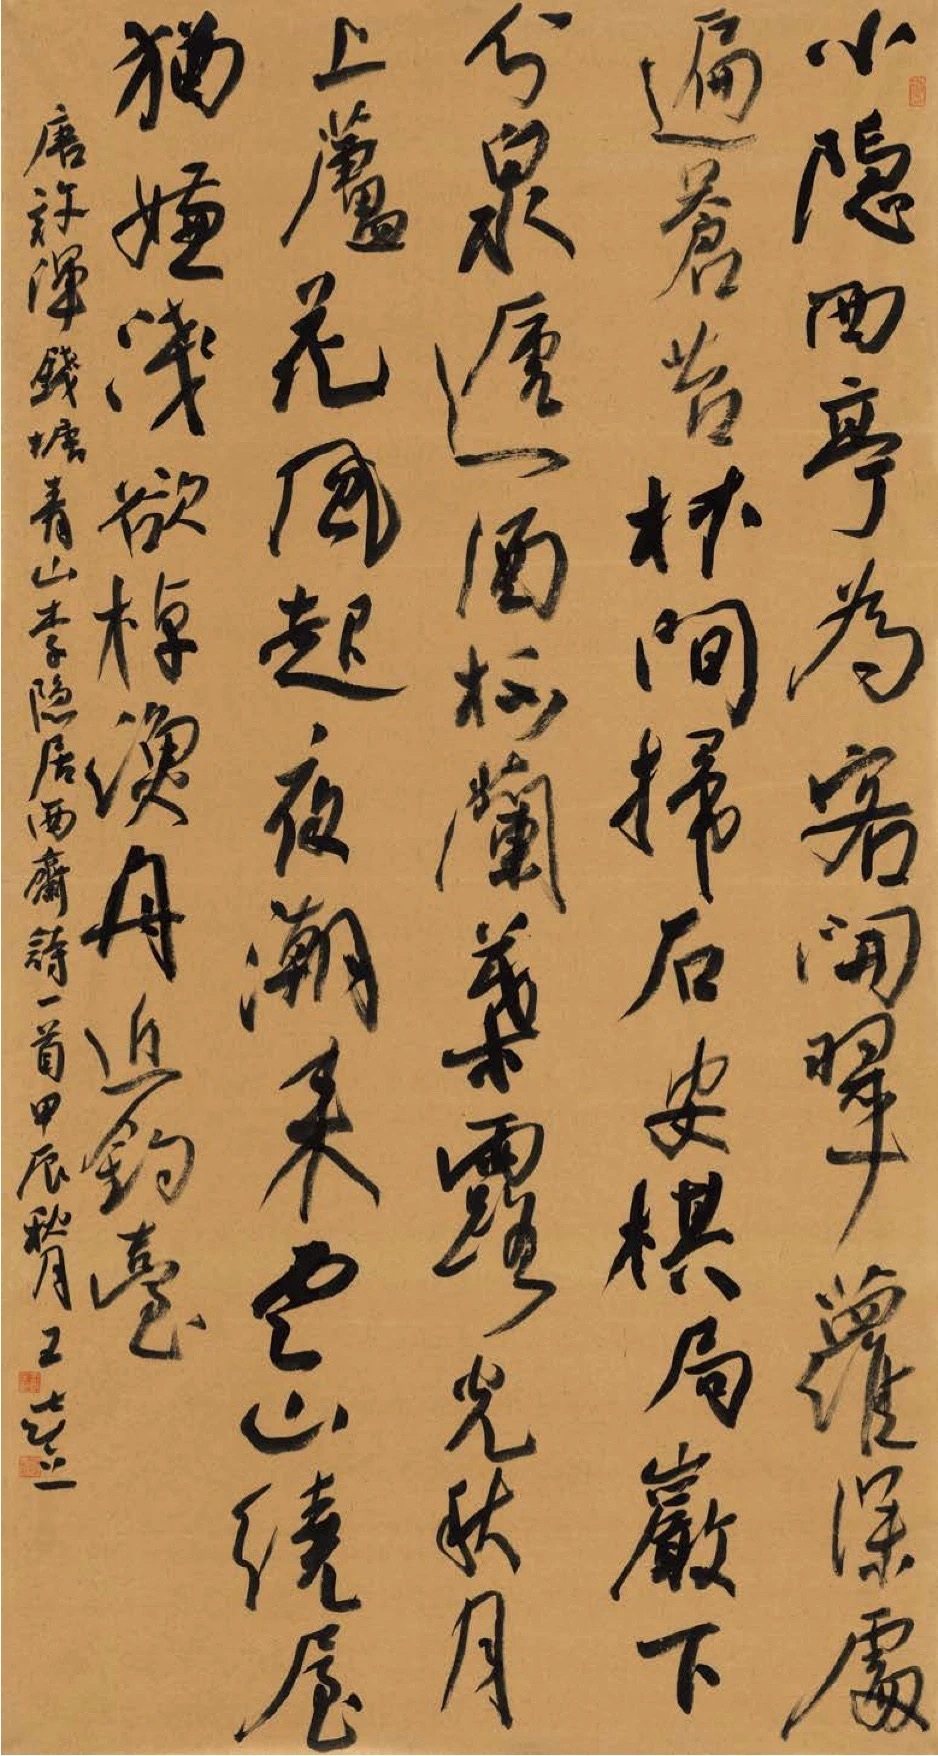 小隐西亭為客開翠蘿深處
遍蒼苔林間掃石安棋局巖下
分泉遞酒杯蘭葉露光秋月
上蘆花風起夜潮來雲山繞屋
猶嫌淺欲棹漁舟近釣臺
唐許渾錢塘青山李隐居西齋詩一首甲辰秋月王